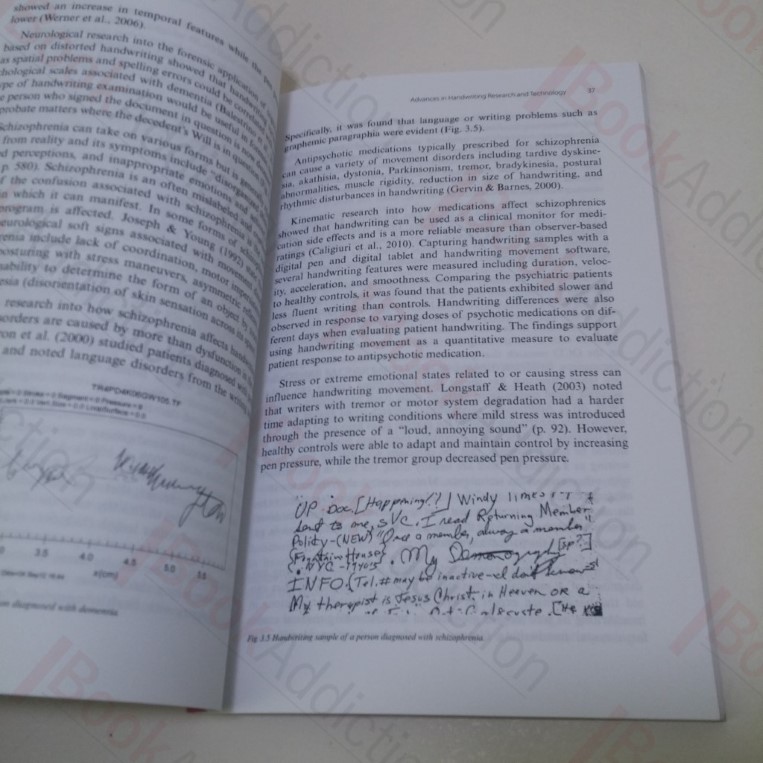 showed an increase in temporal features while the
lower (Werner et al., 2006).
Neurological research into the forensic application of
based on distorted handwriting showed that
as spatial problems and spelling errors could be
chological scales associated with dementia
pe of handwriting examination would be useful
person who signed the document in question is
probate matters where the decedent's Will is in
Schizophrenia can take on various forms but is
from reality and its symptoms include
d perceptions, and inappropriate emotions
p. 580). Schizophrenia is an often mislabeled
f the confusion associated with schizophrenia
n which it can manifest. In some forms of
program is affected. Joseph & Young (1992)
eurological soft signs associated with
renia include lack of coordination, motor
posturing with stress maneuvers, asymmetric
ability to determine the form of an object by
esia (disorientation of skin sensation across
research into how schizophrenia affects
sorders are caused by more than dysfunction
on et al. (2000) studied patients diagnosed
and noted language disorders from the
3.5 4.0 4.5 5.0 5.5
on diagnosed with dementia
Advances in Handwriting Research and Technology 37
Specifically, it was found that language or writing problems such as
graphemic paragraphia were evident (Fig. 3.5).
Antipsychotic medications typically prescribed for schizophrenia
can cause a variety of movement disorders including tardive dyskine-
sia, akathisia, dystonia, Parkinsonism, tremor, bradykinesia, postural
abnormalities, muscle rigidity, reduction in size of handwriting, and
rhythmic disturbances in handwriting (Gervin & Barnes, 2000).
Kinematic research into how medications affect schizophrenics
showed that handwriting can be used as a clinical monitor for medi-
cation side effects and is a more reliable measure than observer-based
ratings (Caligiuri et al., 2010). Capturing handwriting samples with a
digital pen and digital tablet and handwriting movement software,
several handwriting features were measured including duration, veloc-
ity, acceleration, and smoothness. Comparing the psychiatric patients
to healthy controls, it was found that the patients exhibited slower and
less fluent writing than controls. Handwriting differences were also
observed in response to varying doses of psychotic medications on dif-
ferent days when evaluating patient handwriting. The findings support
using handwriting movement as a quantitative measure to evaluate
patient response to antipsychotic medication.
Stress or extreme emotional states related to or causing stress can
influence handwriting movement. Longstaff & Heath (2003) noted
that writers with tremor or motor system degradation had a harder
time adapting to writing conditions where mild stress was introduced
through the presence of a “loud, annoying sound” (p. 92). However,
healthy controls were able to adapt and maintain control by increasing
pen pressure, while the tremor group decreased pen pressure.
UP Doc. [Happening!?] Windy
to me, SVC. I read Returning Member
Policy-(NEW) "Once a member, always a member"
{Fountain House}. My [sp?]
INFO. (Tel.# may be inactive
My therapist is Jesus Christ, in Heaven OR a
Fig. 3.5 Handwriting sample of a person diagnosed with schizophrenia
BookAddiction